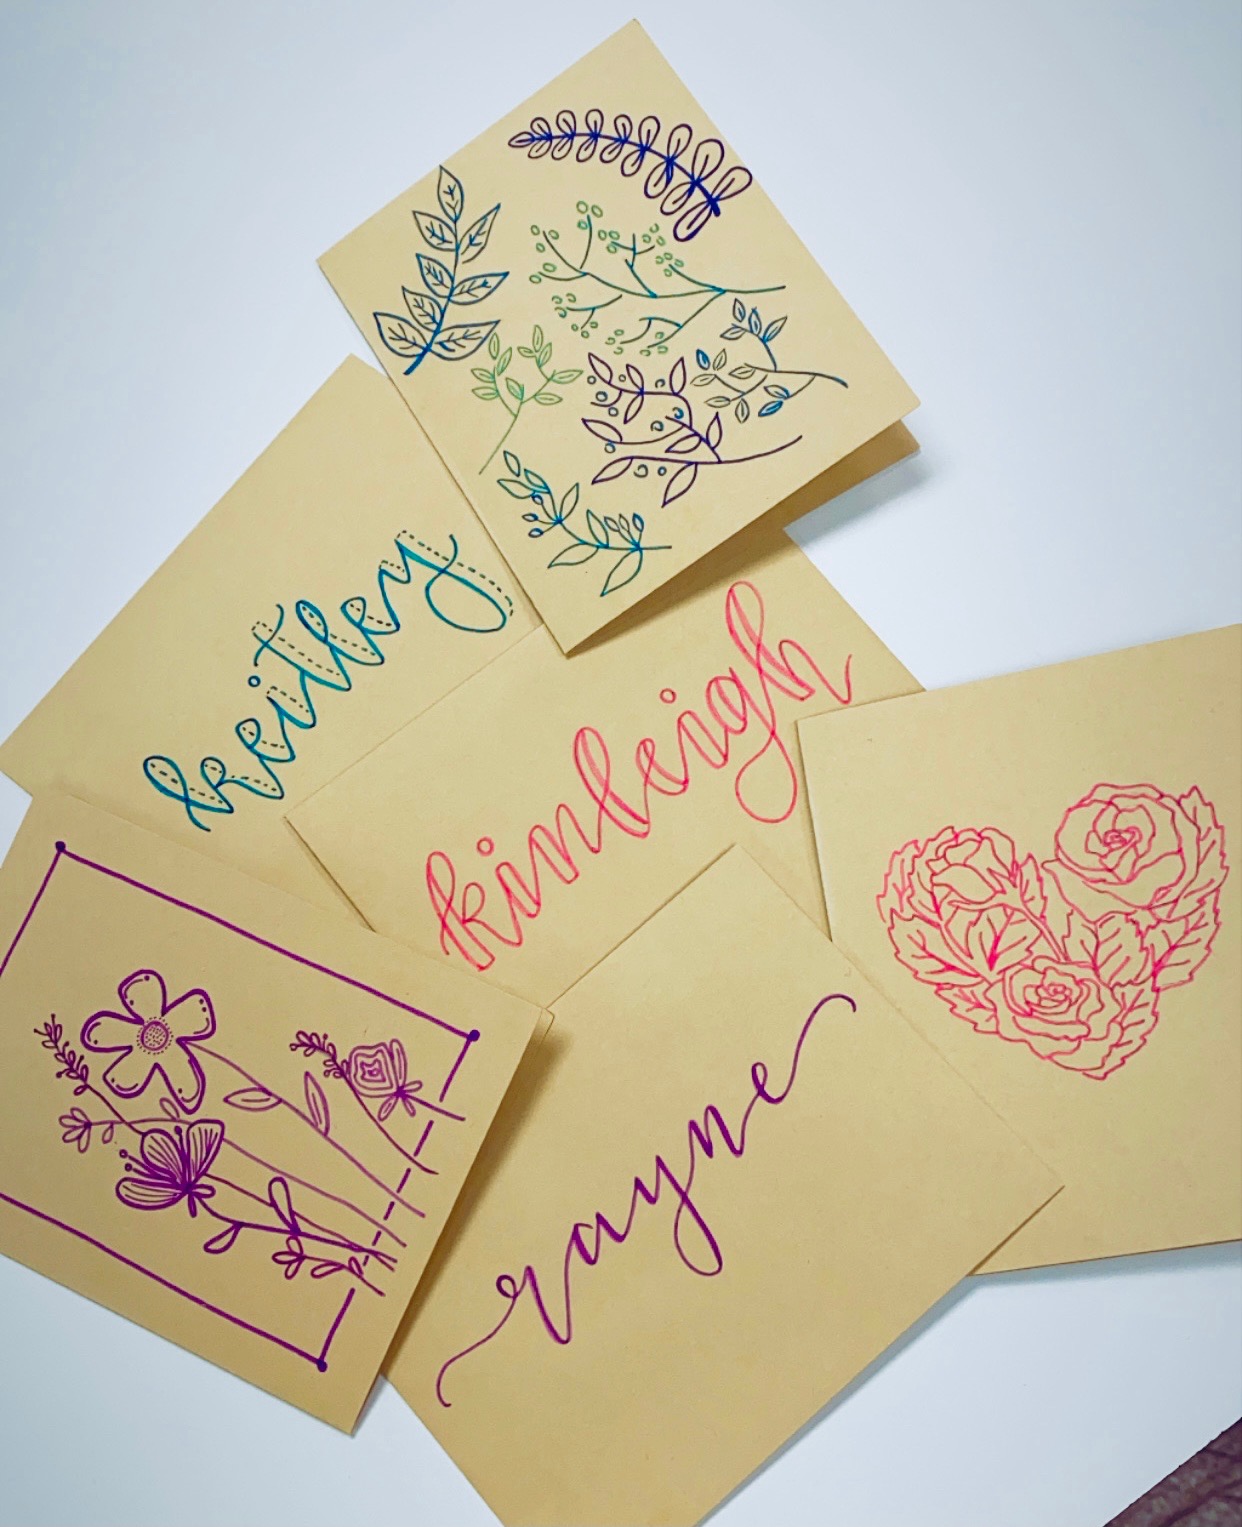 keitley
kinleigh
rayne